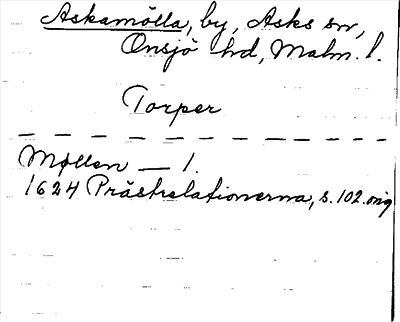 Askamölla, by, Asks sn,
Onsjö hd, Malm. l.
Torper
Møllen — 1.
1624 Prästrelationerna, s. 102. orig